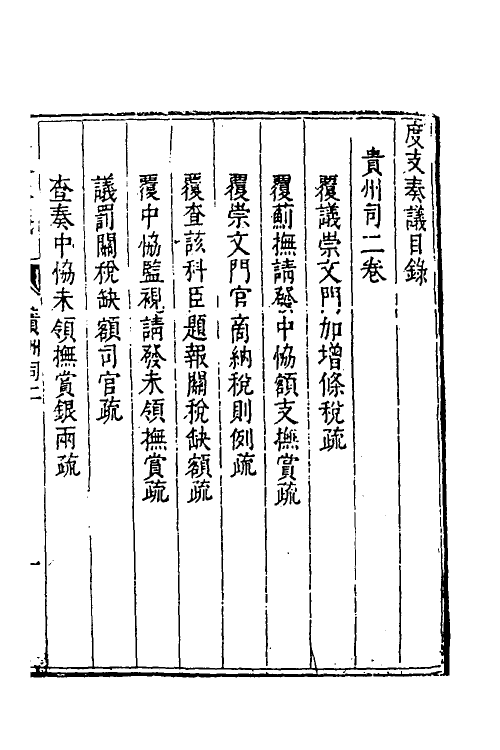 度支奏議目錄
貴州司二卷
覆議崇文門加增條稅疏
覆薊撫請發中協額支撫賞疏
覆崇文門官商納稅則例疏
覆查該科臣題報關稅缺額疏
覆中協監視請發未領撫賞疏
議罰關稅缺額司官疏
查奏中協未領撫賞銀兩疏
貴州司二
一